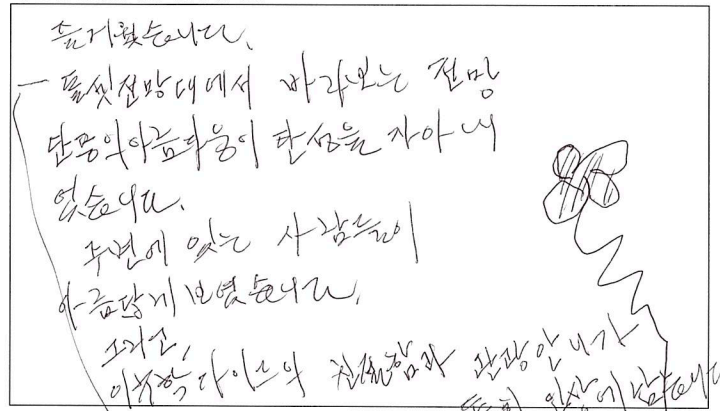 즐거웠습니다.
풀씻전망대에서 바라보는 전망
단풍의아름다움이 탄성을 자아내
었습니다.
주변에 있는 사람들이
아름답게 보였습니다.
그리고,
친절함과 관광안내가
특히 인상에 남습니다